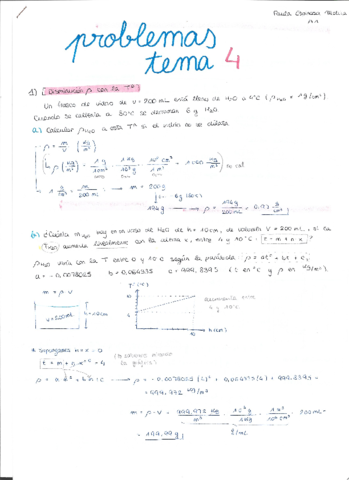 problemas
tema 4
1) Disminución ρ con la Tª
Un frasco de vidrio de V = 200 mL está lleno de H₂O a 4°C (ρ H₂O = 1 g/cm³)
Cuando se calienta a 80°C se derraman 6 g H₂O
a) Calcular ρ H₂O a esta Tª si el vidrio no se dilata
ρ = m/V [kg/m³]
1 g/mL = m/200 mL → m = 200 g
- 6g (80°C)
194 g → ρ = 194 g/200 mL = 0.97 g/cm³
b) ¿Cuánta m H₂O hay en un vaso de H₂O de h = 10 cm, de volumen V = 200 mL, si la
Tª aumenta linealmente con la altura x, entre 4 y 10°C: t = m + n·x?
ρ H₂O varía con la T entre 0 y 10°C según la parábola: ρ = at² + bt + c,
a = -0,0078025 b = 0,064935 c = 999,8395 (t en °C y ρ en kg/m³).
m = ρ · V
V = 200 mL
h = 10cm
T (°C)
10
4
h (cm)
entre
4 y 10°C
* Supongamos h = x = 0
ρ = a·t² + b·t + c → ρ = -0.0078025 (4)² + 0.064935 (4) + 999.8395 =
= 999.972 kg/m³
m = ρ · V = 999.972 kg/m³ · 10³ g/1 kg · 1 m³/10⁶ cm³ · 200 mL =
= 199.99 g